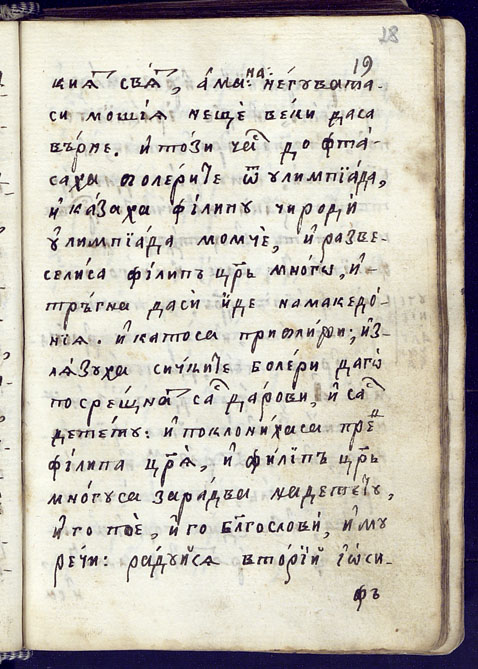 28
19
киѧ҇ свѣ҇т, а҆ма на не́гувата
си мощїѧ нещѐ веки даса
въ́рне. и҆ този ча҇ до фта́
саха болерите ѿ ѹ҆лимпїа́да,
и҆ ка́заха фі́липу чироди
ѹ҆лимпїа́да момчѐ, и҆ разве
селиса фі́липъ цр҃ь много, и҆
тръ́гна даси и҆́де намакедо́
нїѧ. и҆ катоса приближи, и҆з
лѧ́зуха си́чките болери даго
посре́щна҇т са҇ да́рови, и҆ са҇
детето: и҆ поклони́хаса пре҇
фі́липа цр҃ѧ̀, и҆ фі́липъ цр҃ь
многуса зара́два надетету,
и҆ го поѐ, и҆ го бл҃гослови́, и҆ му
речи: ра́дуйсѧ вто́рїй і҆ѡ́си
фъ